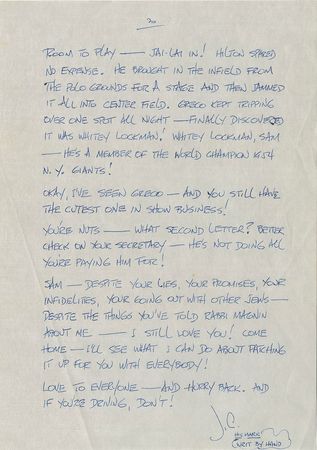 ROOM TO PLAY — JAI-LAI IN! HILTON SPARED
NO EXPENSE. HE BROUGHT IN THE INFIELD FROM
THE POLO GROUNDS FOR A STAGE AND THEN JAMMED
IT ALL INTO CENTER FIELD. GRECO KEPT TRIPPING
OVER ONE SPOT ALL NIGHT — FINALLY DISCOVERED
IT WAS WHITEY LOCKMAN! WHITEY LOCKMAN, SAM
— HE'S A MEMBER OF THE WORLD CHAMPION 1954
N.Y. GIANTS!
OKAY, I'VE SEEN GRECO — AND YOU STILL HAVE
THE CUTEST ONE IN SHOW BUSINESS!
YOU'RE NUTS — WHAT SECOND LETTER? BETTER
CHECK ON YOUR SECRETARY — HE'S NOT DOING ALL
YOU'RE PAYING HIM FOR!
SAM — DESPITE YOUR LIES, YOUR PROMISES, YOUR
INFIDELITES, YOUR GOING OUT WITH OTHER JEWS —
DESPITE THE THINGS YOU'VE TOLD RABBI MAGNIN
ABOUT ME — I STILL LOVE YOU! COME
HOME — I'LL SEE WHAT I CAN DO ABOUT PATCHING
IT UP FOR YOU WITH EVERYBODY!
LOVE TO EVERYONE — AND HURRY BACK. AND
IF YOU'RE DRIVING, DON'T!
J.C
HIS MARK!
WRIT BY HAND